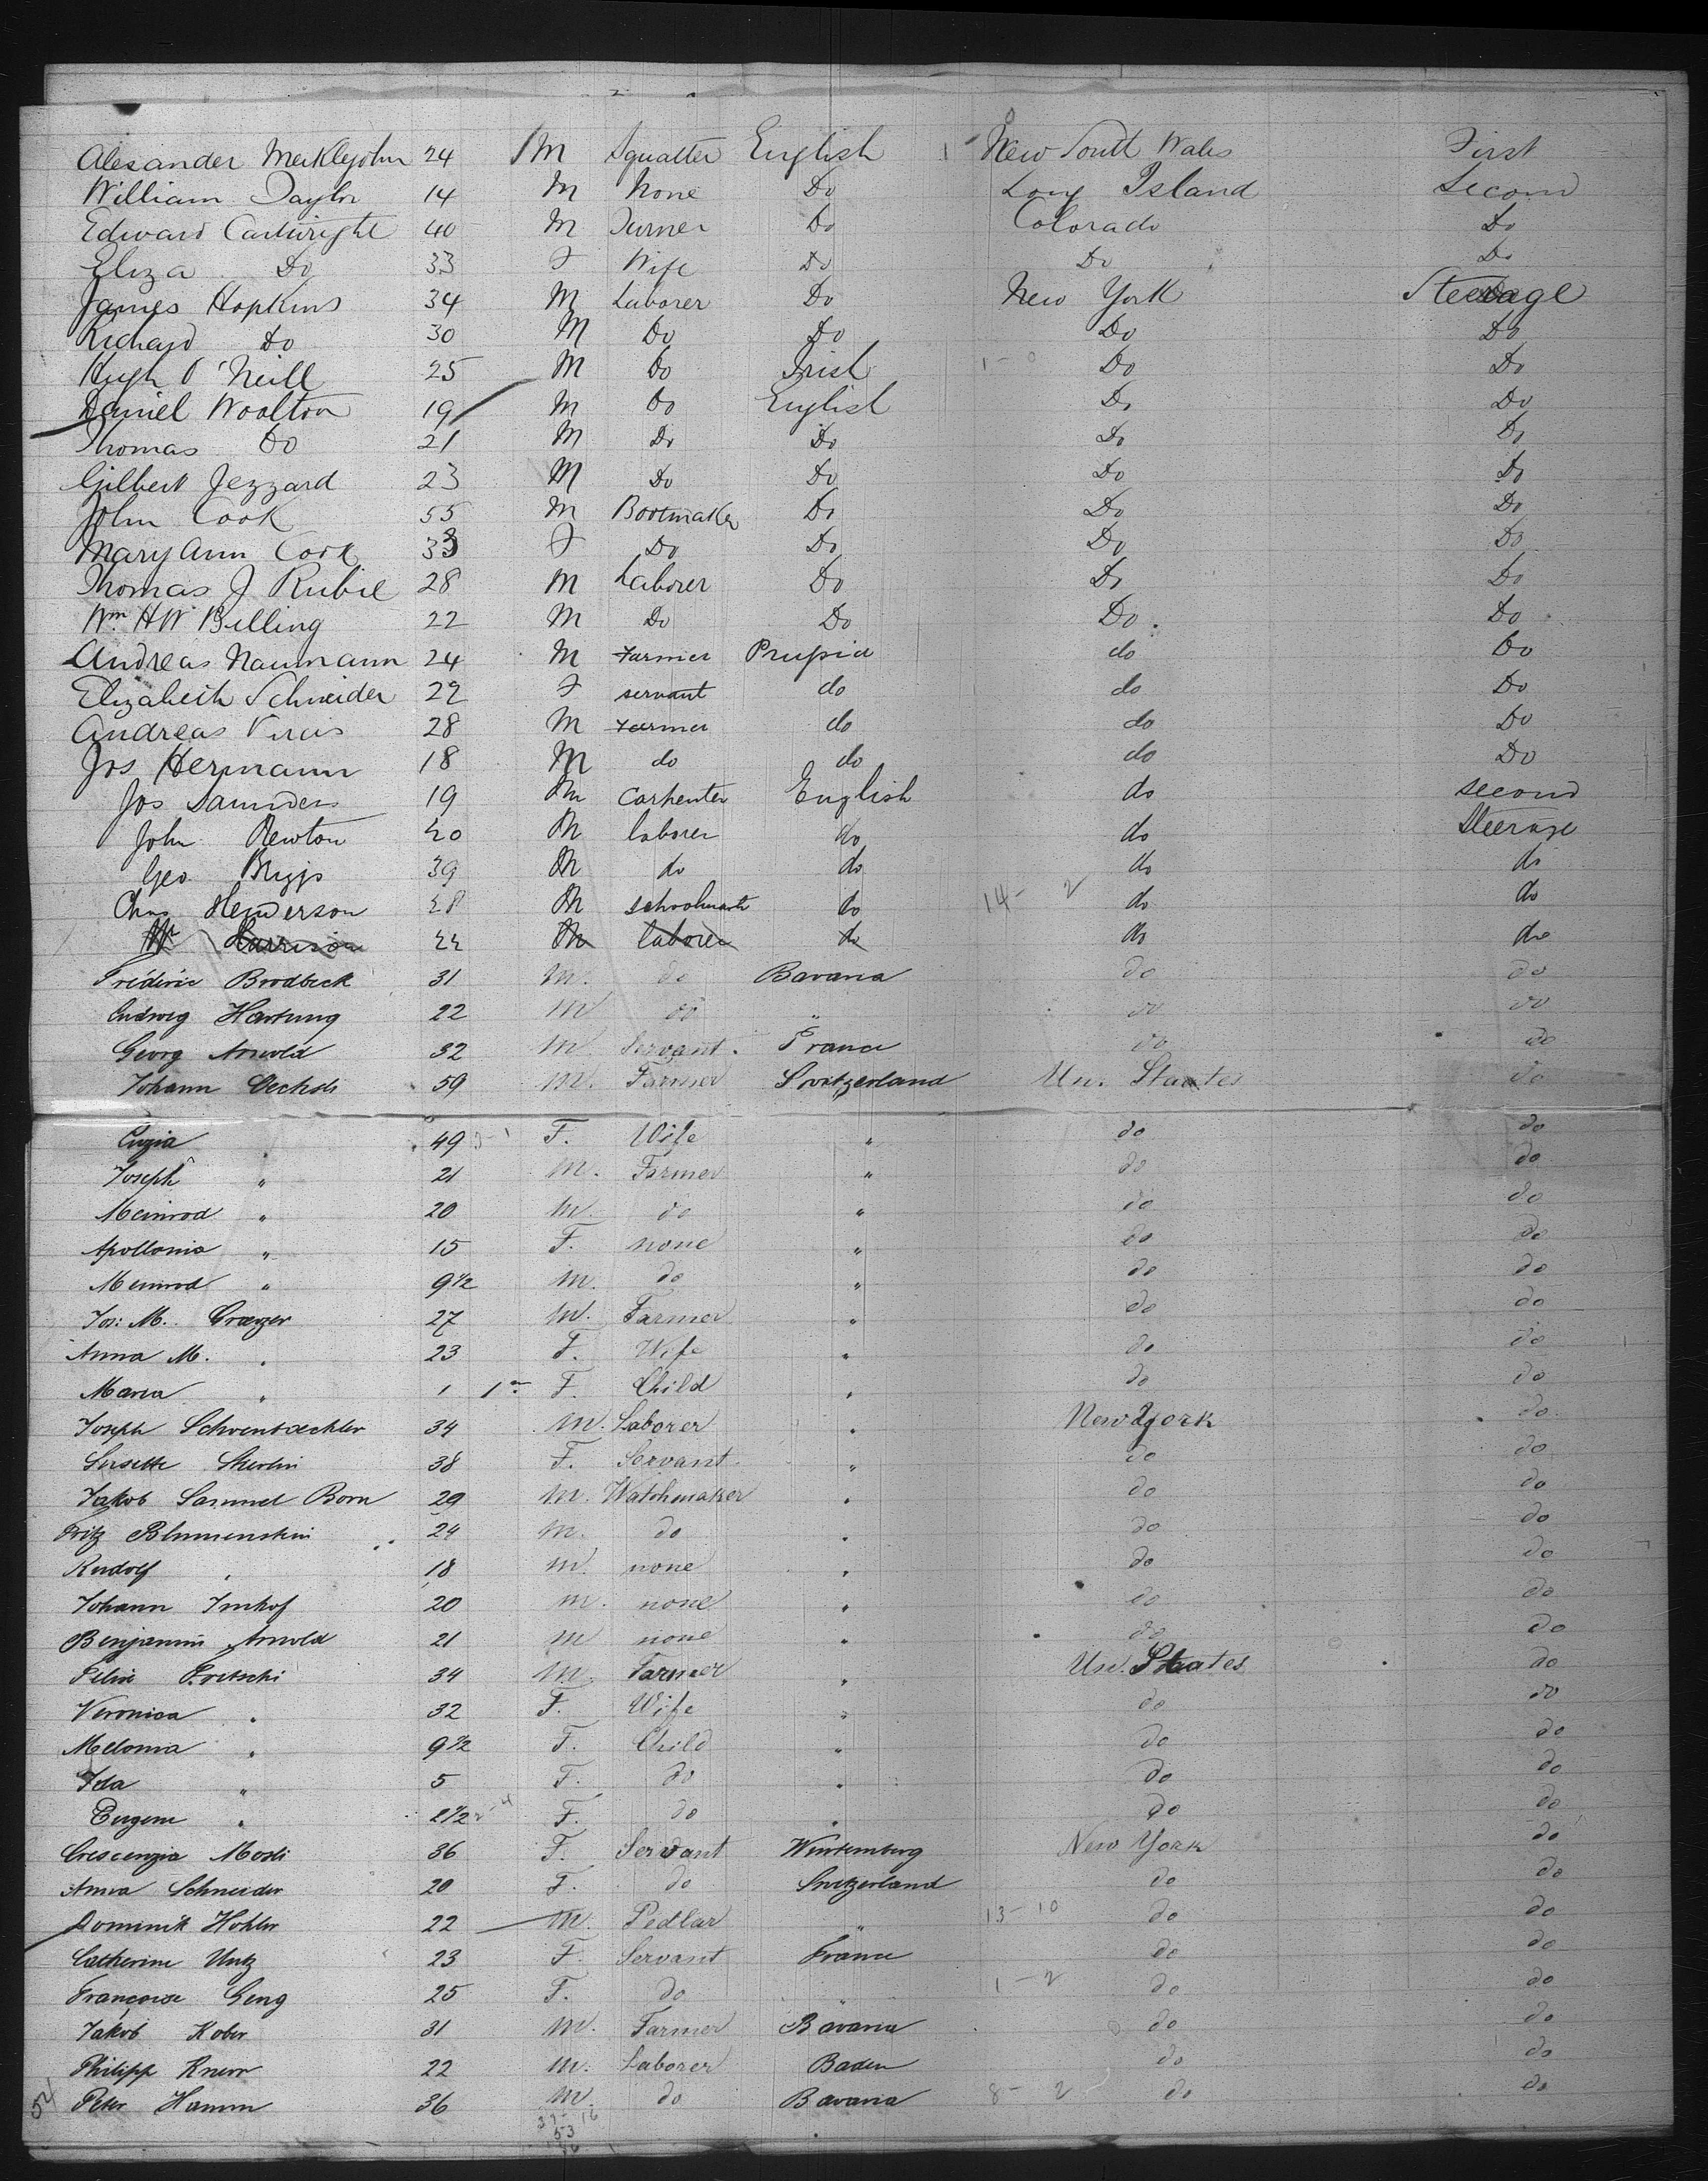 Alexander Meiklejohn 24 M Squatter English New South Wales First
William Taylor 14 M None Do Long Island Second
Edward Cartwright 40 M Turner Do Colorado Do
Eliza Do 33 F Wife Do Do Do
James Hopkins 34 M Laborer Do New York Steerage
Richard Do 30 M Do Do Do Do
Hugh O'Neill 25 M Do Irish 1-0 Do Do
Daniel Woolton 19 M Do English Do Do
Thomas Do 21 M Do Do Do Do
Gilbert Jezzard 23 M Do Do Do Do
John Cook 55 M Bootmaker Do Do Do
Mary Ann Cook 33 F Do Do Do Do
Thomas J Rubie 28 M Laborer Do Do Do
Wm HW Billing 22 M Do Do Do Do
Andreas Naumann 24 M Farmer Prussia do Do
Elizabeth Schneider 22 F servant do do Do
Andreas 28 M Farmer do do Do
Jos Hermann 18 M do do do Do
Jos Saunders 19 M Carpenter English do second
John Newton 20 M laborer do do Steerage
Geo Briggs 39 M do do do do
Chas Henderson 28 M do 14-2 do do
Wm Harrison 22 M laborer do do do
Fréderic Brodbeck 31 M. do Bavaria do do
Ludwig Hartung 22 M do " do do
Georg Arnold 32 M Servant France do do
Johann Oechsli 59 M. Farmer Switzerland Un. Staates do
49 F. Wife " do do
Joseph " 21 M. Farmer " do do
Meinrod " 20 M. do " do do
Apollonia " 15 F. none " do do
Meinrod " 9½ M. do " do do
Jos: M. Graezer 27 M. Farmer " do do
Anna M. " 23 F. Wife " do do
Maria " 1 F. Child " do do
Joseph 34 M. Laborer " New York do
38 F. Servant " do do
Jakob Samuel Born 29 M. Watchmaker " do do
Fritz Blumenstein 24 M. do " do do
Rudolf " 18 M. none " do do
Johann Imhof 20 M. none " do do
Benjamin Arnold 21 M none " do do
Felix 34 M. Farmer " Un. Staates do
Veronica " 32 F. Wife " do do
Melonia " 9½ F. Child " do do
Ida " 5 F. do " do do
Eugene " 2½ F. do " do do
Crescenzia 36 F. Servant Würtemberg New York do
Anna Schneider 20 F. do Switzerland do do
Dominik Hohler 22 M. Pedlar " 13-10 do do
Catherine Untz 23 F. Servant France do do
Françoise Geng 25 F. do " 1-2 do do
Jakob Kober 31 M. Farmer Bavaria do do
Philipp 22 M. Laborer Baden do do
Peter Hamm 36 M. do Bavaria 8-2 do do